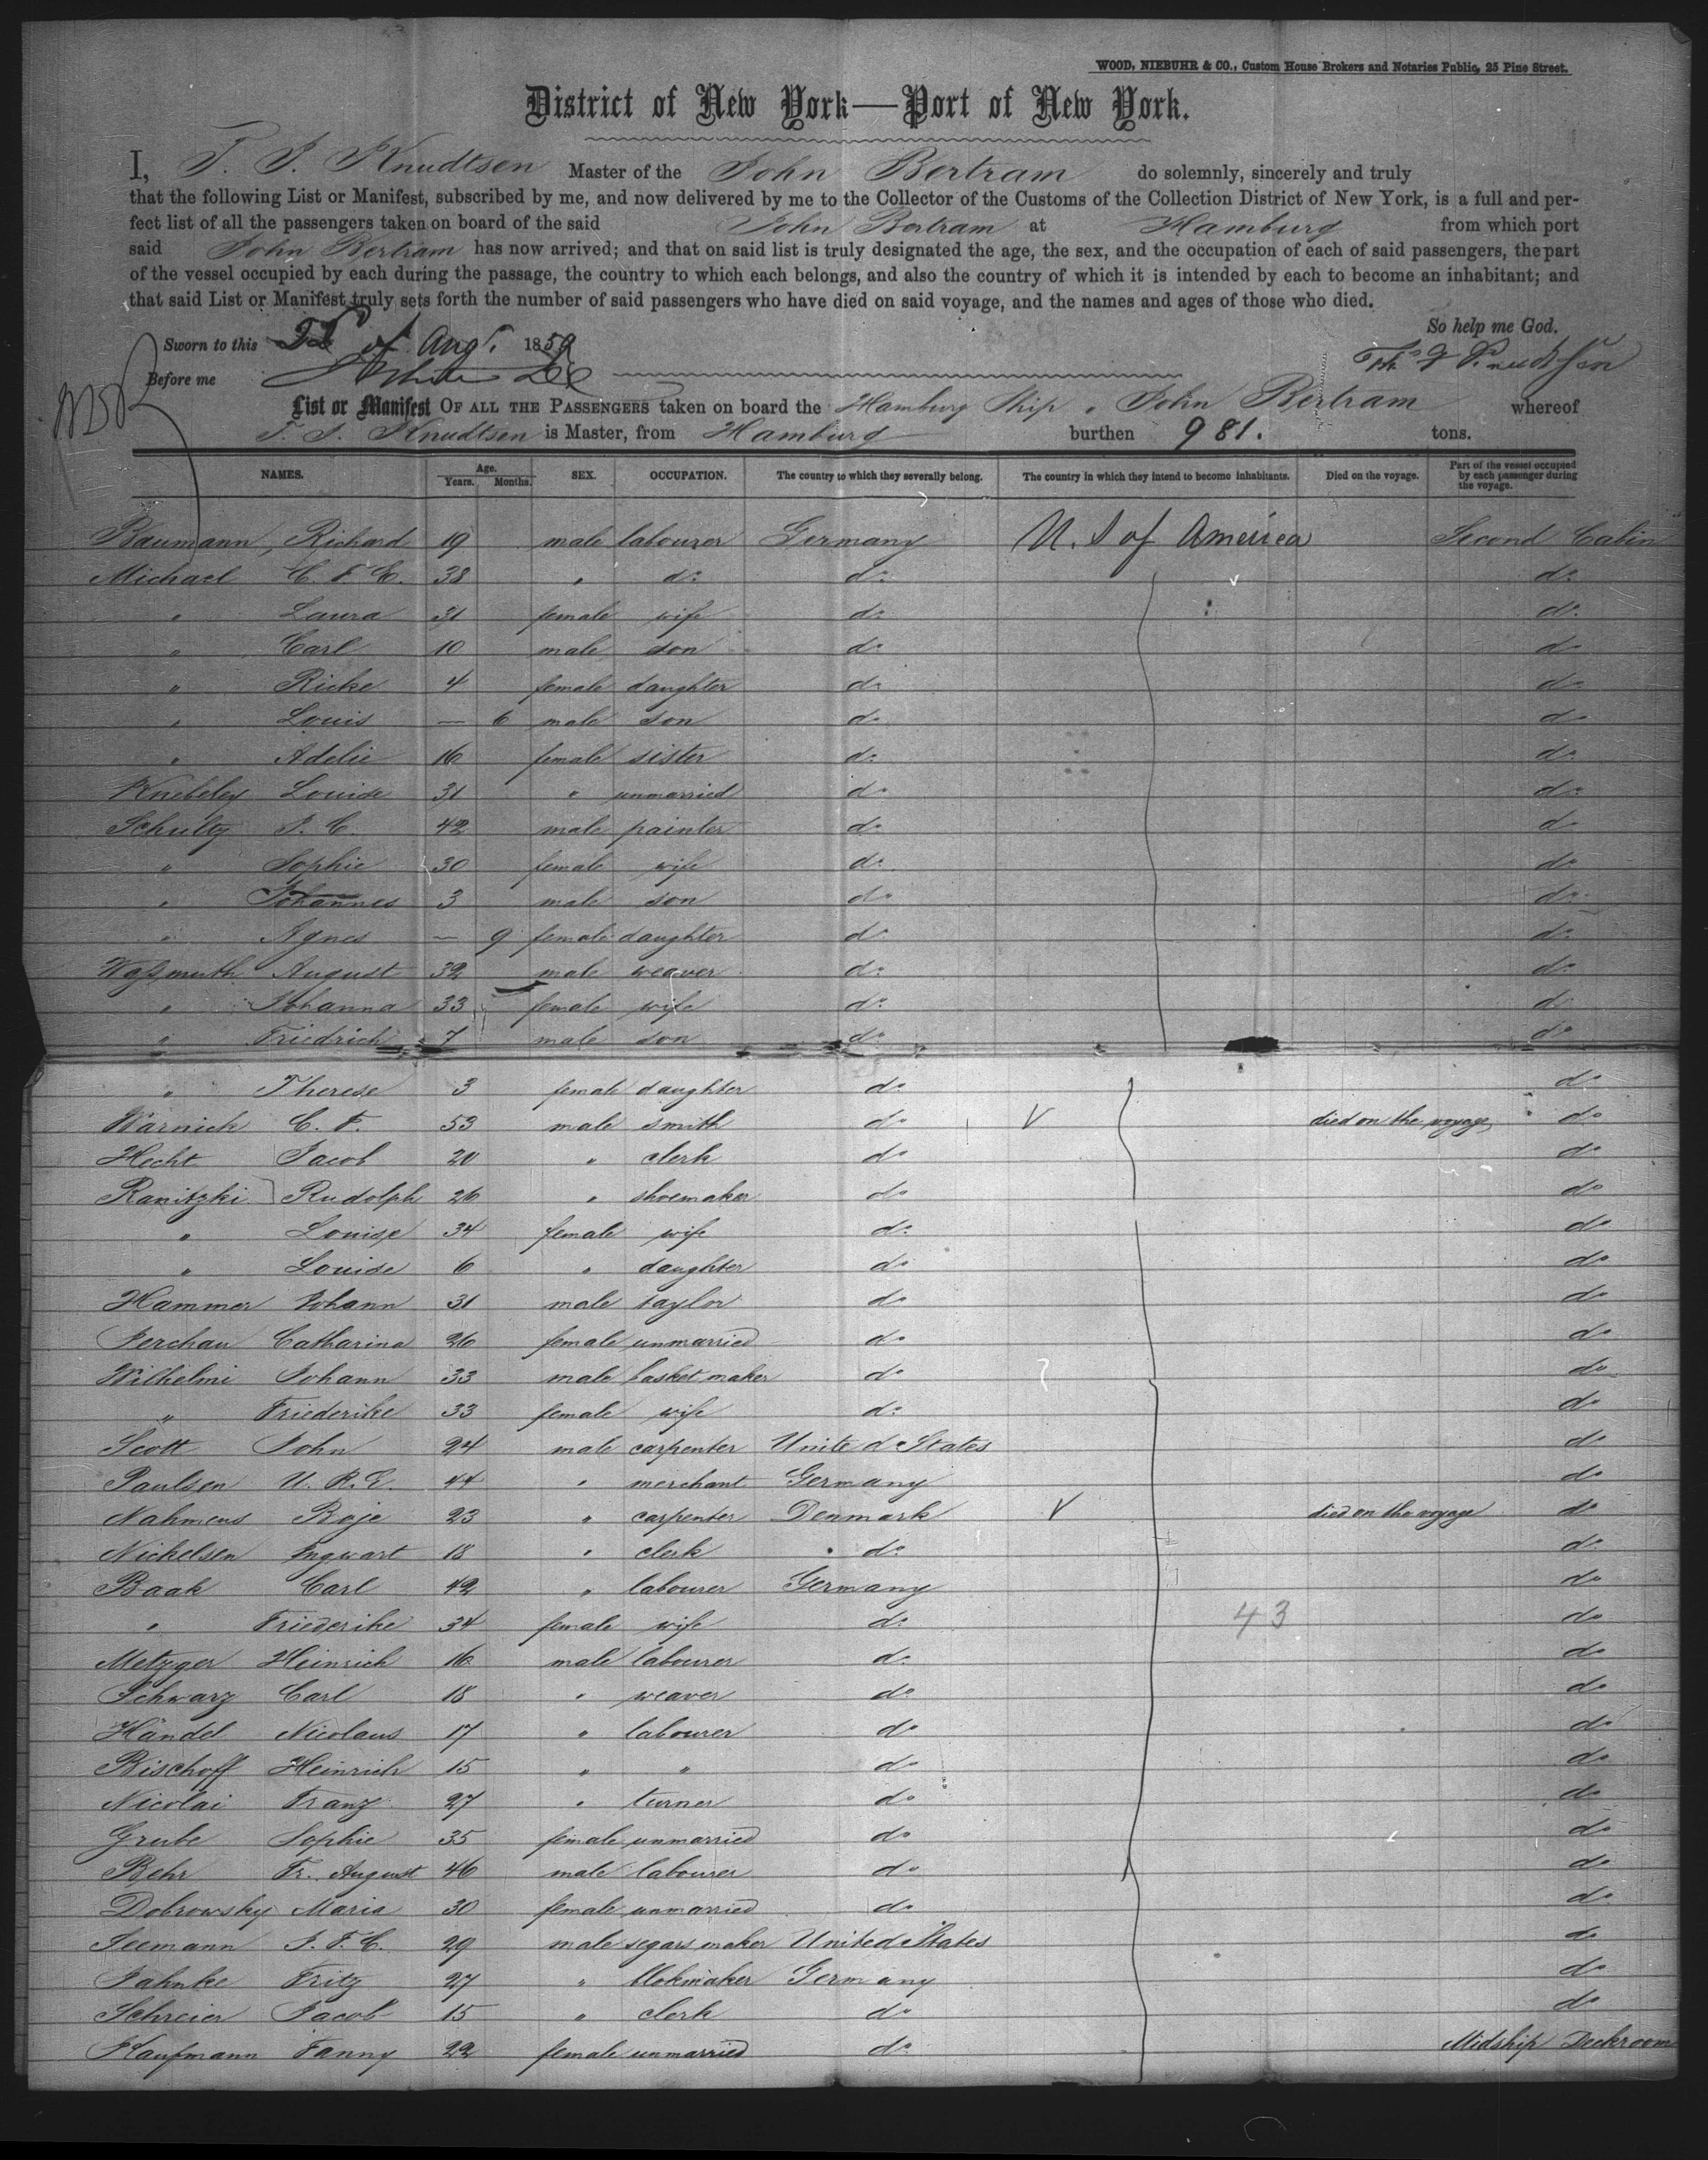 WOOD, NIEBUHR & CO., Custom House Brokers and Notaries Public, 25 Pine Street.
District of New York—Port of New York.
I, T. J. Knudtsen Master of the John Bertram do solemnly, sincerely and truly
that the following List or Manifest, subscribed by me, and now delivered by me to the Collector of the Customs of the Collection District of New York, is a full and per-
fect list of all the passengers taken on board of the said John Bertram at Hamburg from which port
said John Bertram has now arrived; and that on said list is truly designated the age, the sex, and the occupation of each of said passengers, the part
of the vessel occupied by each during the passage, the country to which each belongs, and also the country of which it is intended by each to become an inhabitant; and
that said List or Manifest truly sets forth the number of said passengers who have died on said voyage, and the names and ages of those who died.
So help me God.
Sworn to this of Aug. 1859
Before me
List or Manifest OF ALL THE PASSENGERS taken on board the Hamburg Ship " John Bertram whereof
T. J. Knudtsen is Master, from Hamburg burthen 981. tons.
NAMES. Age. Years. Months. SEX. OCCUPATION. The country to which they severally belong. The country in which they intend to become inhabitants. Died on the voyage. Part of the vessel occupied by each passenger during the voyage.
Baumann, Richard 19 male labourer Germany U. S of America Second Cabin
Michael C. F. E. 38 " do do do
" Laura 31 female wife do do
" Carl 10 male son do do
" Ricke 4 female daughter do do
" Louis — 6 male son do do
" Adelie 16 female sister do do
Knebeley Louise 31 " unmarried do do
Schultz J. C. 42 male painter do do
" Sophie 30 female wife do do
" Johannes 3 male son do do
" Agnes — 9 female daughter do do
Waßmuth August 32 male weaver do do
" Johanna 33 female wife do do
" Friedrich 7 male son do do
" Therese 3 female daughter do do
Warnick C. F. 53 male smith do died on the voyage do
Hecht Jacob 20 " clerk do do
Ranitzki Rudolph 26 " shoemaker do do
" Louise 34 female wife do do
" Louise 6 " daughter do do
Hammer Johann 31 male taylor do do
Jerchau Catharina 26 female unmarried do do
Wilhelmi Johann 33 male basket maker do do
" Friederike 33 female wife do do
Scott John 24 male carpenter United States do
Paulsen U. R. E. 44 " merchant Germany do
Nahmens Roje 23 " carpenter Denmark died on the voyage do
Nickelsen Ingwart 18 " clerk do do
Baak Carl 42 " labourer Germany do
" Friederike 34 female wife do 43 do
Metzger Heinrich 16 male labourer do do
Schwarz Carl 18 " weaver do do
Händel Nicolaus 17 " labourer do do
Bischoff Heinrich 15 " " do do
Nicolai Franz 27 " turner do do
Grube Sophie 35 female unmarried do do
Behr Fr. August 46 male labourer do do
Dobrowsky Maria 30 female unmarried do do
Seemann J. F. C. 29 male segars maker United States do
Jahnke Fritz 27 " blokmaker Germany do
Schreier Jacob 15 " clerk do do
Kaufmann Fanny 22 female unmarried do Midship Deckroom